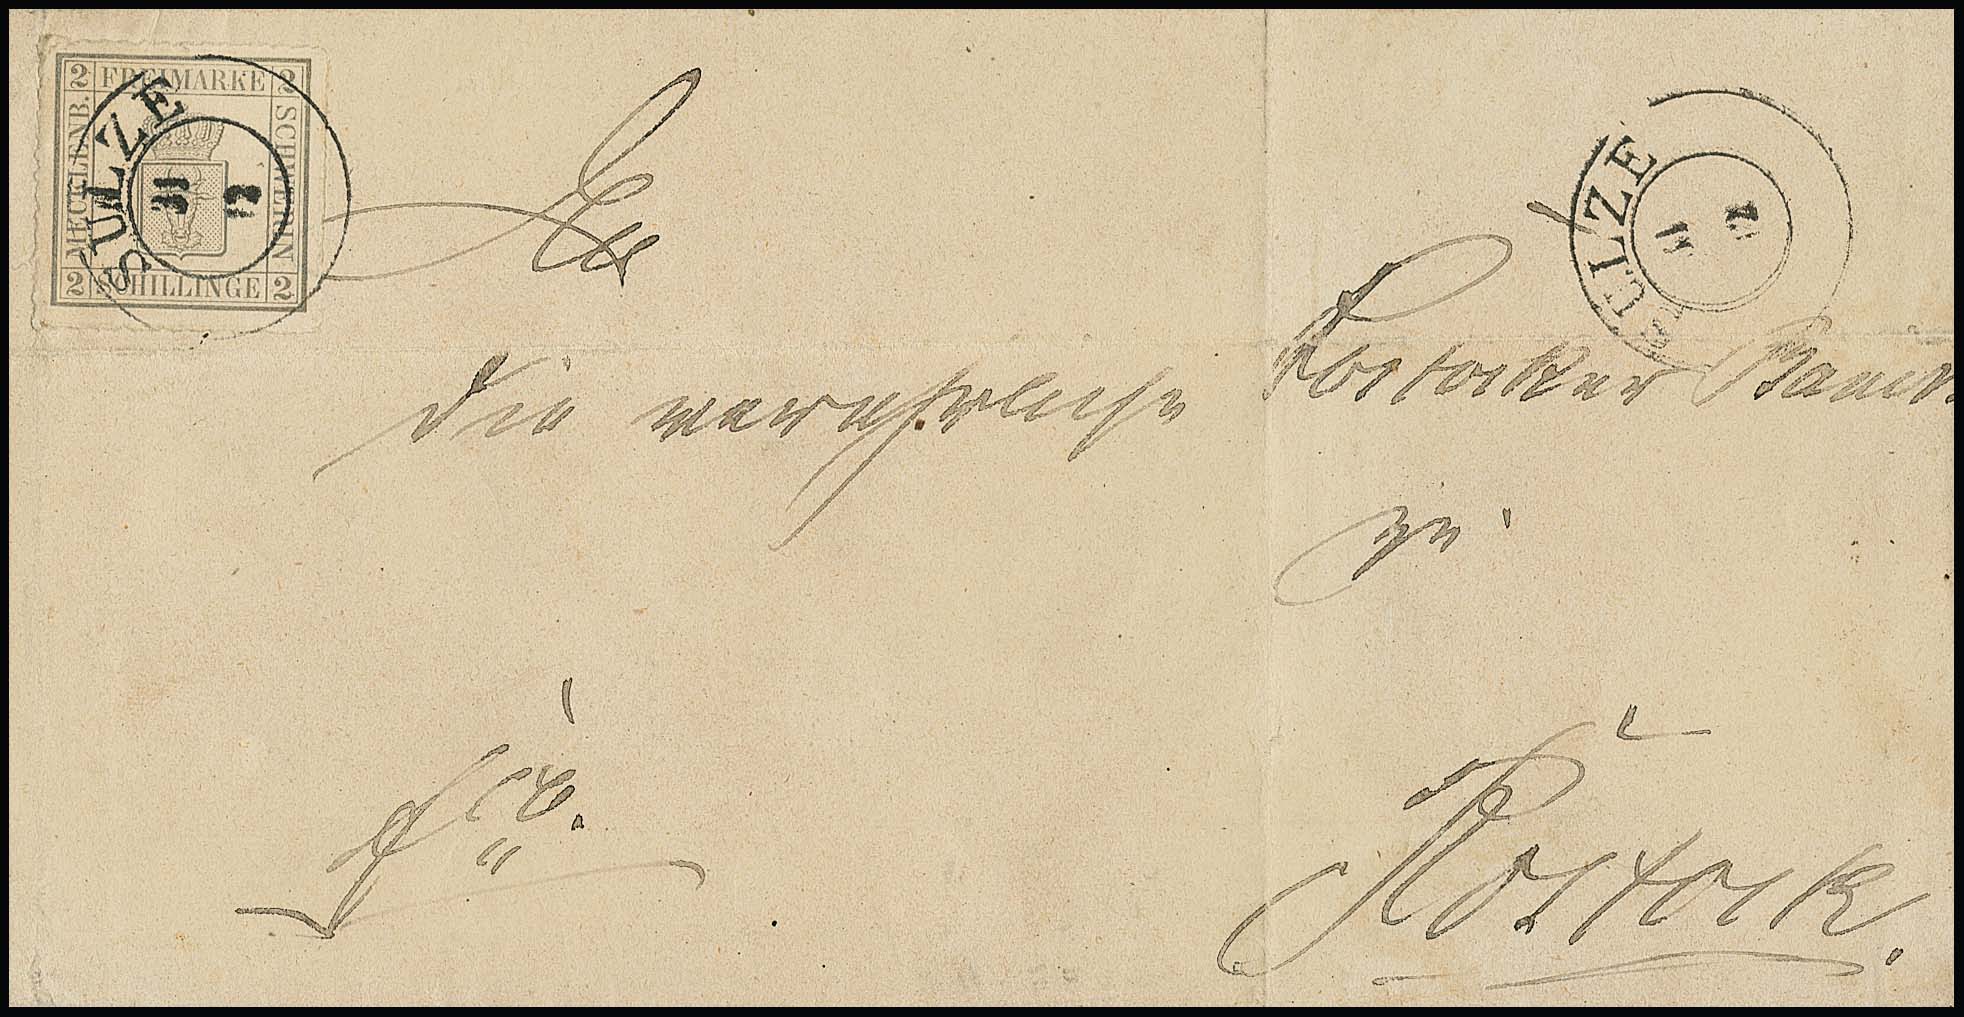 2 FREIMARKE 2
MECKLENB.
SCHWERIN
2 SCHILLINGE 2
SULZE
31
12
SULZE
12
An
die verehrliche Rostocker Bank
zu
Rostock.